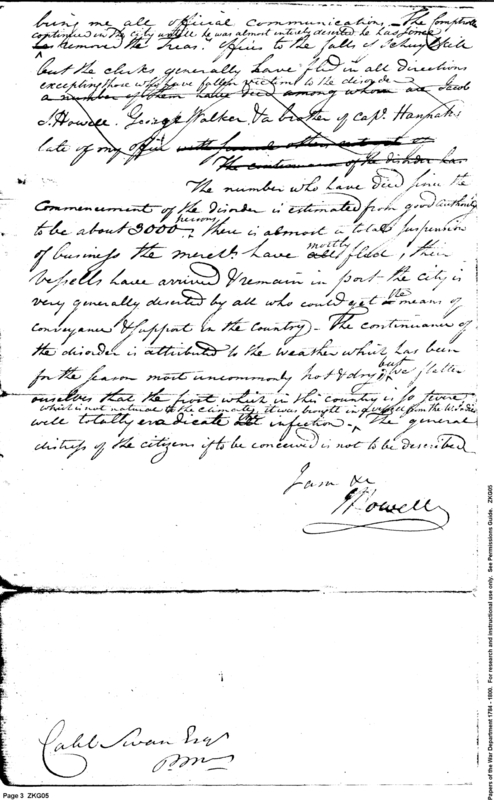 bring me all official communications. The Comptroller
continued in the city untill he was almost entirely deserted he has since
he removed the Treas. offices to the falls of Schuylkill
but the clerks generally have fled in all directions
excepting those who have fallen victims to the disorder
a number of them have died among whom are Jacob
S. Howell. George Walker. & a brother of Capt. Hannah's
late of my office with several others
The continuance of the disorder has
The number who have died since the
Commencement of the disorder is estimated from good authority
persons
to be about 3000. There is almost a total suspension
mostly
of business the merchts. have all fled, their
vessells have arrived & remain in port the city is
the
very generally deserted by all who could get means of
conveyance & support in the country) - The continuance of
the disorder is attributed to the weather which has been
but
for the season most uncommonly hot & dry we flatter
ourselves that the frost which in this country is so severe,
which is not natural to the climate, it was brought in from the
will totally eradicate the infection. The general
distress of the citizens if to be conceived is not to be described
I am &c
J Howell
Caleb Swan Esqr
PMr
Page 3 ZKG05
Papers of the War Department 1784 - 1800. For research and instructional use only. See Permissions Guide. ZKG05